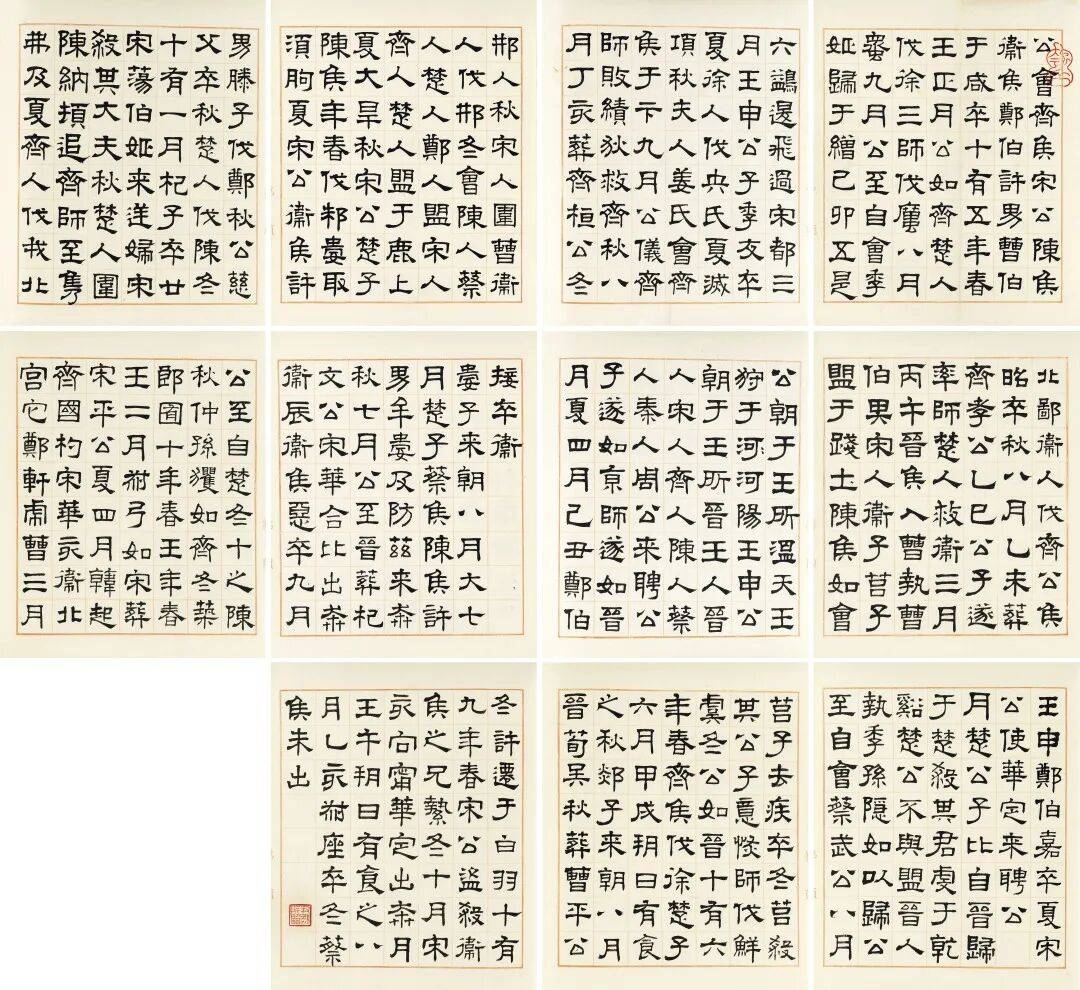 公會齊侯宋公陳侯
衞侯鄭伯許男曹伯
于咸卒十有五年春
王正月公如齊楚人
伐徐三師伐厲八月
螽九月公至自會季
姬歸于繒己卯五是
六鷁退飛過宋都三
月王申公子季友卒
夏徐人伐英氏夏滅
項秋夫人姜氏會齊
侯于卞九月公儀齊
師敗績狄救齊秋八
月丁亥葬齊桓公冬
邢人秋宋人圍曹衞
人伐邢冬會陳人蔡
人楚人鄭人盟宋人
齊人楚人盟于鹿上
夏大旱秋宋公楚子
陳侯年春伐邾婁取
須朐夏宋公衞侯許
男滕子伐鄭秋公慈
父卒秋楚人伐陳冬
十有一月杞子卒廿
宋蕩伯姬來逆婦宋
殺其大夫秋楚人圍
陳納頓追齊師至雋
弗及夏齊人伐我北
北鄙衞人伐齊公侯
昭卒秋八月乙未葬
齊孝公乙巳公子遂
率師楚人救衞三月
丙午晉侯入曹執曹
伯畀宋人衞子莒子
盟于踐土陳侯如會
公朝于王所溫天王
狩于河河陽王申公
朝于王所晉王人晉
人宋人齊人陳人蔡
人秦人周公來聘公
子遂如京師遂如晉
月夏四月己丑鄭伯
接卒衞
婁子來朝八月大七
月楚子蔡侯陳侯許
男牟婁及防茲來奔
秋七月公至晉葬杞
文公宋華合比出奔
衞辰衞侯惡卒九月
公至自楚冬十之陳
秋仲孫貜如齊冬築
郎囿十年春王年春
王二月叔弓如宋葬
宋平公夏四月韓起
齊國杓宋華亥衞北
宮它鄭軒虎曹三月
王申鄭伯嘉卒夏宋
公使華定來聘公
月楚公子比自晉歸
于楚殺其君虔于乾
谿楚公不與盟晉人
執季孫隱如以歸公
至自會蔡武公八月
莒子去疾卒冬莒殺
其公子意恢師伐鮮
虞冬公如晉十有六
年春齊侯伐徐楚子
六月甲戌朔日有食
之秋郯子來朝八月
晉荀吳秋葬曹平公
冬許遷于白羽十有
九年春宋公盜殺衞
侯之兄縶冬十月宋
亥向甯華定出奔月
王午朔日有食之八
月乙亥叔座卒冬蔡
侯朱出